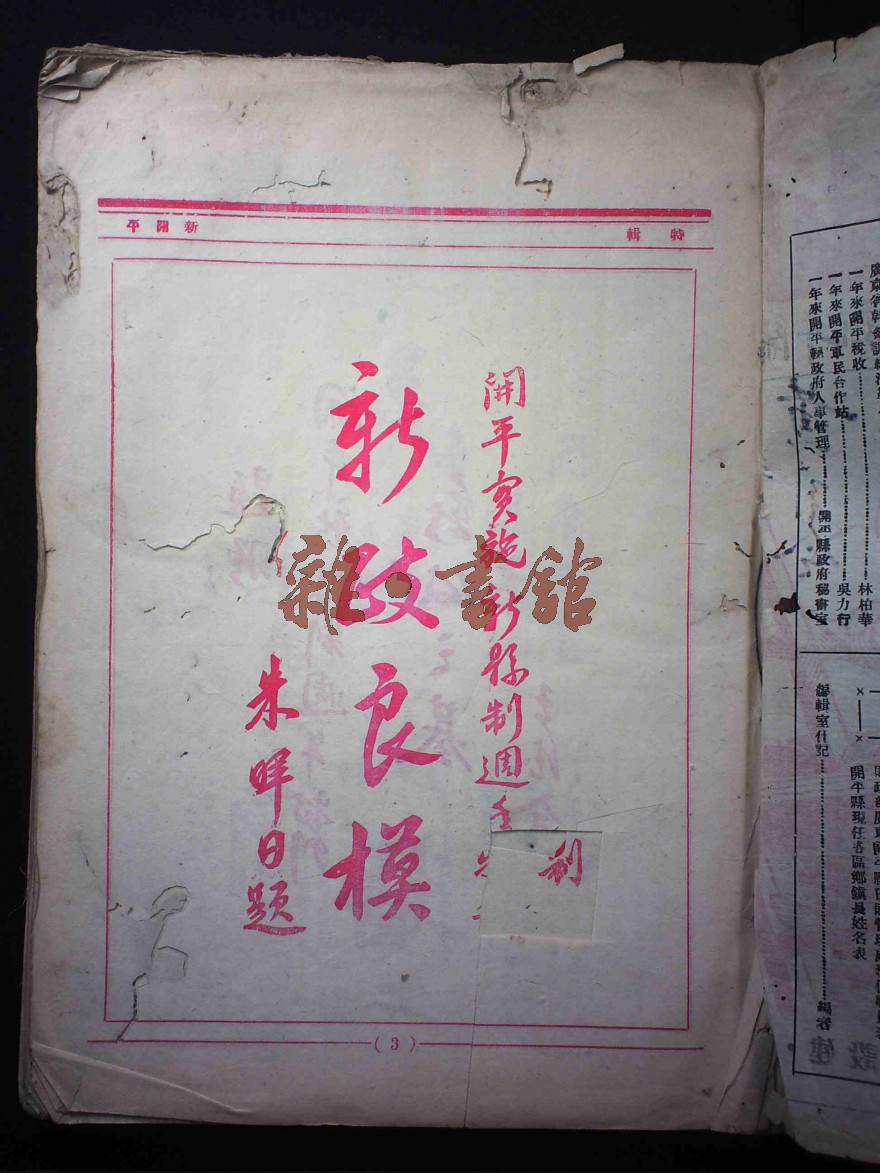 特輯
新開平
開平實施新縣制週年
刊
新政良模
朱暉日題
( 3 )
雜·書館
一年來開平稅收 林柏華
一年來開平軍民合作站 吳力行
一年來開平縣政府人事管理 開平縣政府秘書室
開平縣現任各區鄉鎮長姓名表
編輯室付記 編者
建設